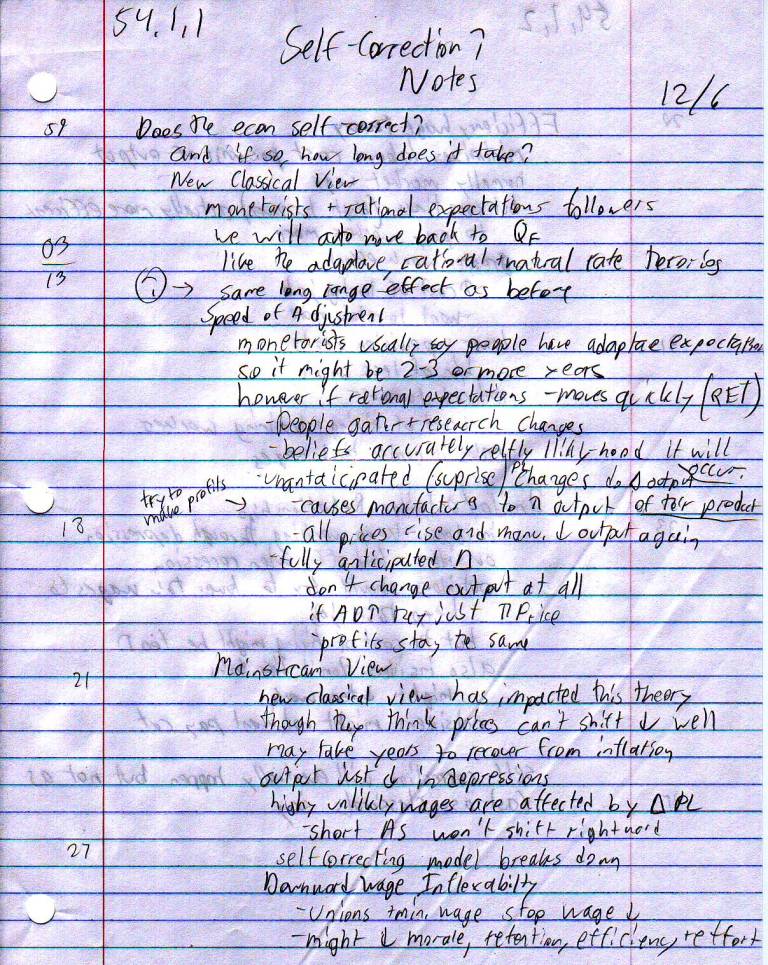 54.1.1
Self-Correction?
Notes
12/6
59 Does the econ self-correct?
and if so, how long does it take?
New Classical View
monetarists + rational expectations followers
we will auto move back to QF
03 like the adaptave, rational + natural rate terories
13 ① → same long range effect as before
Speed of Adjustment
monetorists usually say people have adaptae expectations
so it might be 2-3 or more years
however if rational expectations - moves quickly (RET)
- People gater + research changes
- beliefs accurately reltly llikly-hood it will occur.
- unantaicipated (suprise) PL changes do Δ output
try to make profits → - causes manufacturs to ↑ output of teir product
18 - all prices rise and manu. ↓ output again
- fully anticipated Δ
don't change output at all
if AD↑ they just ↑ Price
- profits stay te same
21 Mainstream View
new classical view has impacted this theory
though they think prices can't shift ↓ well
may take years to recover from inflation
output just ↓ in depressions
highy unlikly wages are affected by Δ PL
- short AS won't shift rightward
27 self correcting model breaks down
Downward Wage Inflexability
- Unions + min. wage stop wage ↓
- might ↓ morale, retention, efficiency, + effort